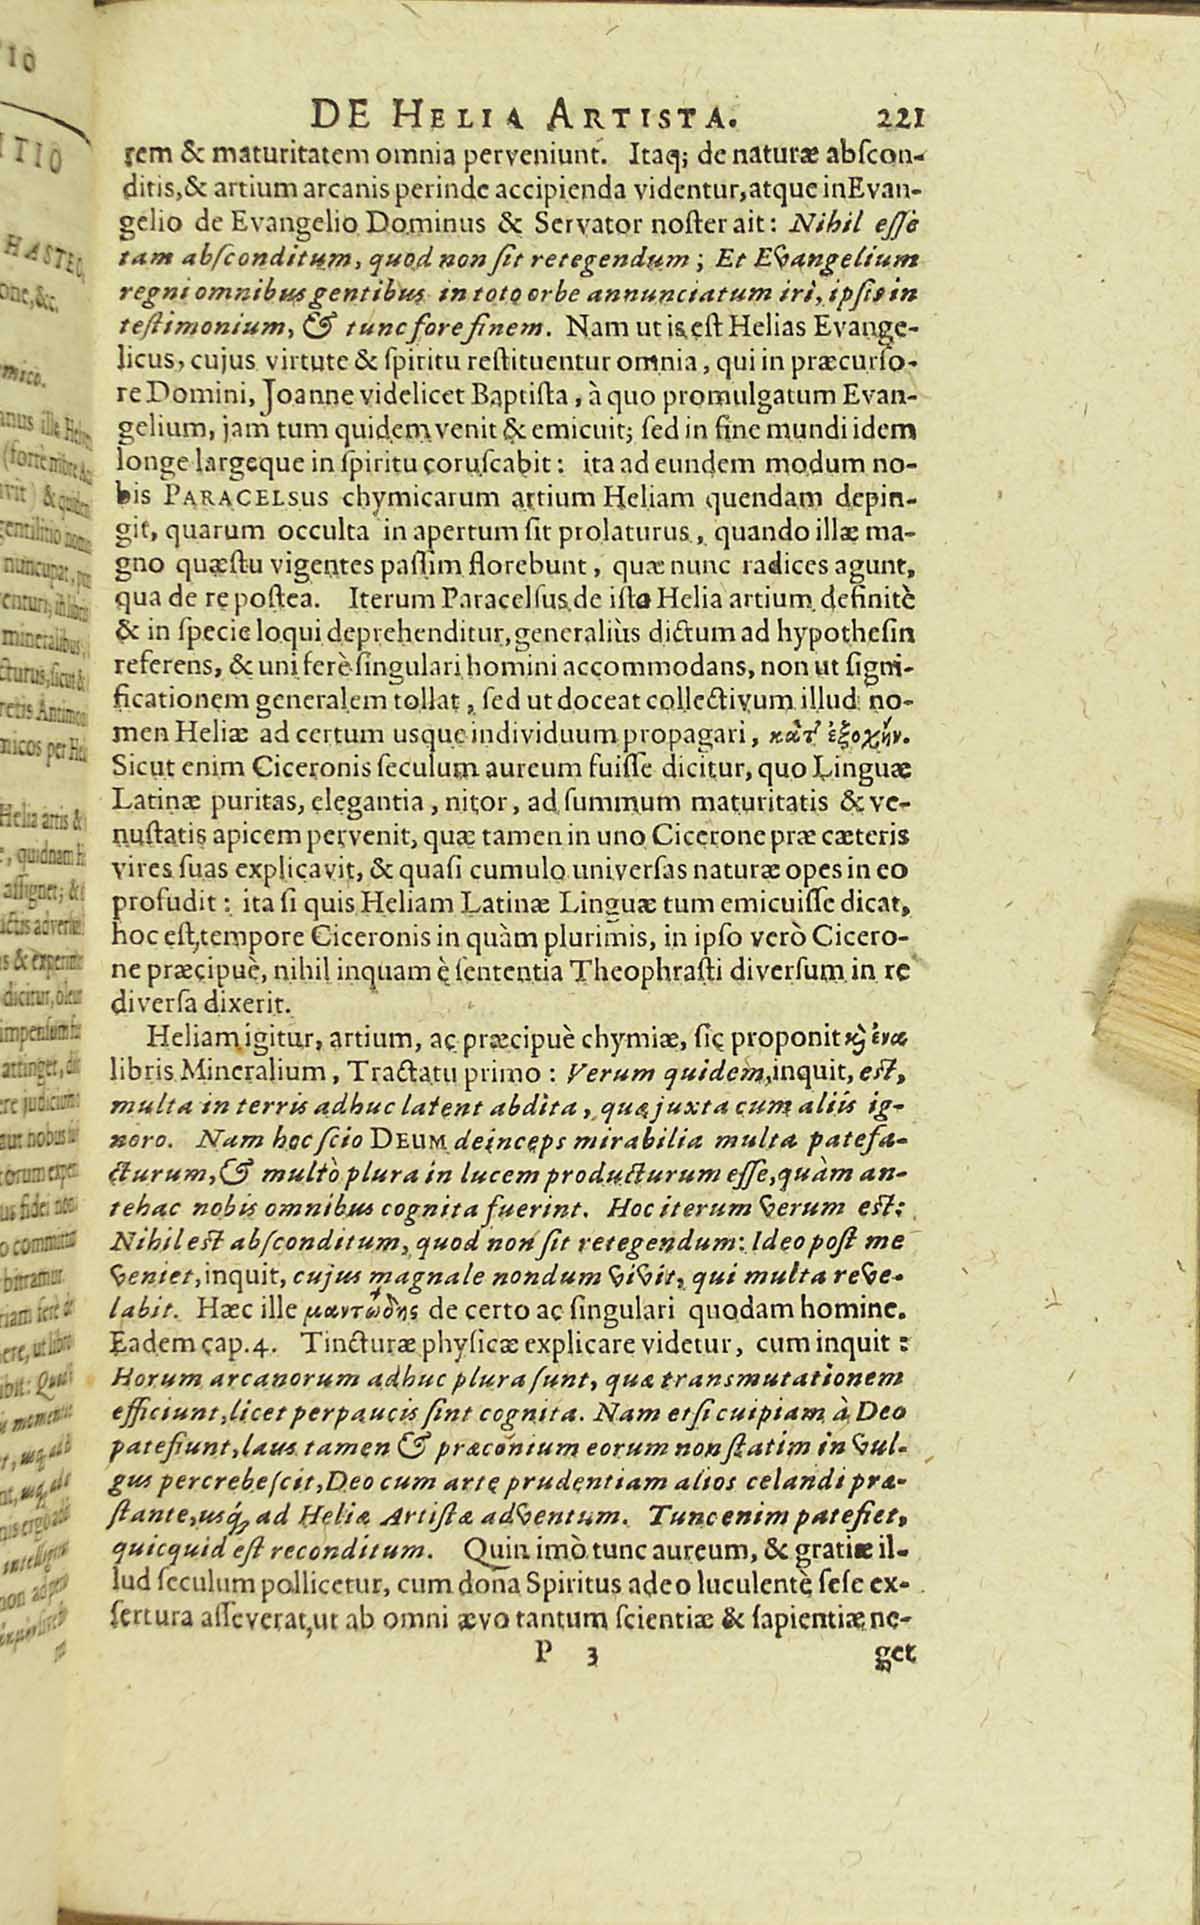 DE HELIA ARTISTA. 221
rem & maturitatem omnia perveniunt. Itaq; de naturæ abscon-
ditis, & artium arcanis perinde accipienda videntur, atque in Evan-
gelio de Evangelio Dominus & Servator noster ait: Nihil esse
tam absconditum, quod non sit retegendum; Et Evangelium
regni omnibus gentibus in toto orbe annunciatum iri, ipsis in
testimonium, & tunc fore finem. Nam ut is est Helias Evange-
licus, cujus virtute & spiritu restituentur omnia, qui in præcurso-
re Domini, Joanne videlicet Baptista, à quo promulgatum Evan-
gelium, jam tum quidem venit & emicuit; sed in fine mundi idem
longe largeque in spiritu coruscabit: ita ad eundem modum no-
bis PARACELSUS chymicarum artium Heliam quendam depin-
git, quarum occulta in apertum sit prolaturus, quando illæ ma-
gno quæstu vigentes passim florebunt, quæ nunc radices agunt,
qua de re postea. Iterum Paracelsus de isto Helia artium definitè
& in specie loqui deprehenditur, generaliùs dictum ad hypothesin
referens, & uni ferè singulari homini accommodans, non ut signi-
ficationem generalem tollat, sed ut doceat collectivum illud no-
men Heliæ ad certum usque individuum propagari, κατ' ἐξοχήν.
Sicut enim Ciceronis seculum aureum fuisse dicitur, quo Linguæ
Latinæ puritas, elegantia, nitor, ad summum maturitatis & ve-
nustatis apicem pervenit, quæ tamen in uno Cicerone præ cæteris
vires suas explicavit, & quasi cumulo universas naturæ opes in eo
profudit: ita si quis Heliam Latinæ Linguæ tum emicuisse dicat,
hoc est, tempore Ciceronis in quàm plurimis, in ipso verò Cicero-
ne præcipuè, nihil inquam è sententia Theophrasti diversum in re
diversa dixerit.
Heliam igitur, artium, ac præcipuè chymiæ, sic proponit ϗ ἕνα
libris Mineralium, Tractatu primo: Verum quidem, inquit, est,
multa in terris adhuc latent abdita, quæ juxta cum aliis ig-
noro. Nam hoc scio DEUM deinceps mirabilia multa patefa-
cturum, & multò plura in lucem producturum esse, quàm an-
tehac nobis omnibus cognita fuerint. Hoc iterum verum est:
Nihil est absconditum, quod non sit retegendum: Ideo post me
veniet, inquit, cujus magnale nondum vivit, qui multa reve-
labit. Hæc ille μαντώδης de certo ac singulari quodam homine.
Eadem cap. 4. Tincturæ physicæ explicare videtur, cum inquit:
Horum arcanorum adhuc plura sunt, quæ transmutationem
efficiunt, licet perpaucis sint cognita. Nam etsi cuipiam à Deo
patefiunt, laus tamen & præconium eorum non statim in vul-
gus percrebescit, Deo cum arte prudentiam alios celandi præ-
stante, usq; ad Heliæ Artistæ adventum. Tunc enim patefiet,
quicquid est reconditum. Quin imò tunc aureum, & gratiæ il-
lud seculum pollicetur, cum dona Spiritus adeo luculentè sese ex-
sertura asseverat, ut ab omni ævo tantum scientiæ & sapientiæ ne-
P 3 get